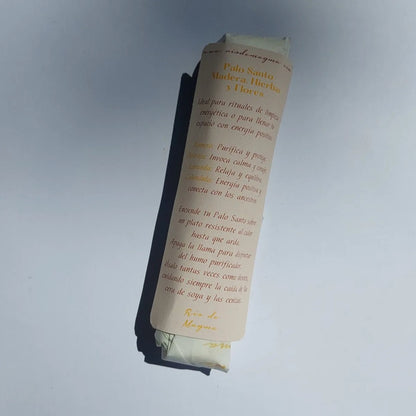 Palo Santo
Madera, Hierbas
y Flores
Ideal para rituales de limpieza
energética o para llenar tu
espacio con energía positiva.
Purifica y protege.
Invoca calma y
Relaja y equilibra.
Energía positiva y
conecta con los ancestros.
Enciende tu Palo Santo sobre
un plato resistente al calor
hasta que arda.
Apaga la llama para disfrutar
del humo purificador.
Úsalo tantas veces como desees,
cuidando siempre la caída de la
cera de soya y las cenizas.
Río de
Magia